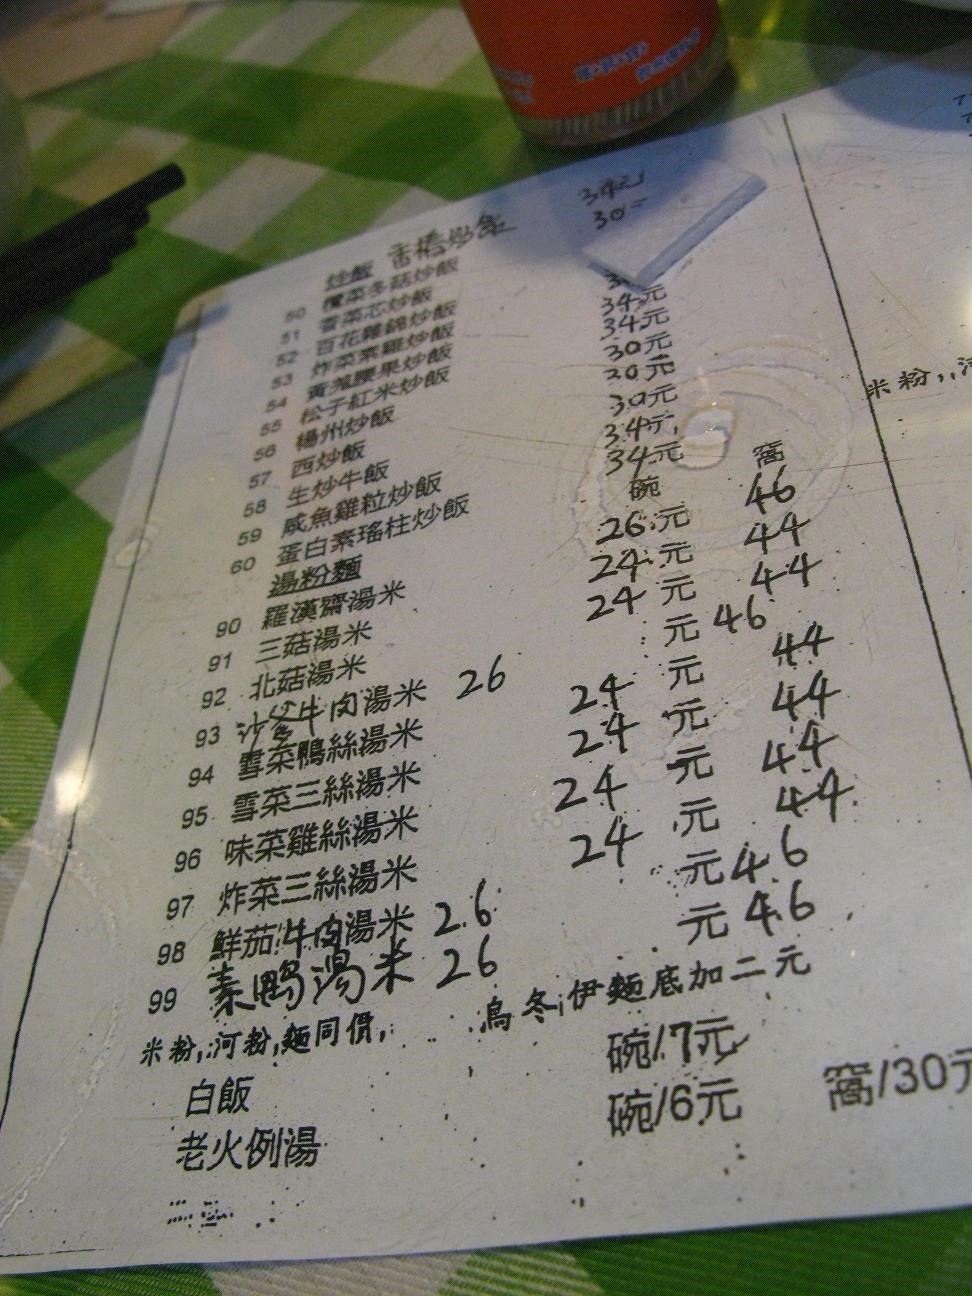 炒飯 香椿炒飯 34元
30
50 欖菜冬菇炒飯
51 雪菜芯炒飯
52 百花雜錦炒飯 34元
53 炸菜素雞炒飯 34元
54 黃薑腰果炒飯 30元
55 松子紅米炒飯 20元
56 楊州炒飯 30元
57 西炒飯 34元
58 生炒牛飯 34元
59 咸魚雞粒炒飯
60 蛋白素瑤柱炒飯
湯粉麵 碗 窩
90 羅漢齋湯米 26元 46
91 三菇湯米 24元 44
92 北菇湯米 24元 44
93 沙爹牛肉湯米 26 元 46
94 雪菜鴨絲湯米 24元 44
95 雪菜三絲湯米 24元 44
96 味菜雞絲湯米 24元 44
97 炸菜三絲湯米 24元 44
98 鮮茄牛肉湯米 26 元 46
99 素鴨湯米 26 元 46
米粉,河粉,麵同價, 烏冬,伊麵底加二元
白飯 碗/7元
老火例湯 碗/6元 窩/30元
米粉,河